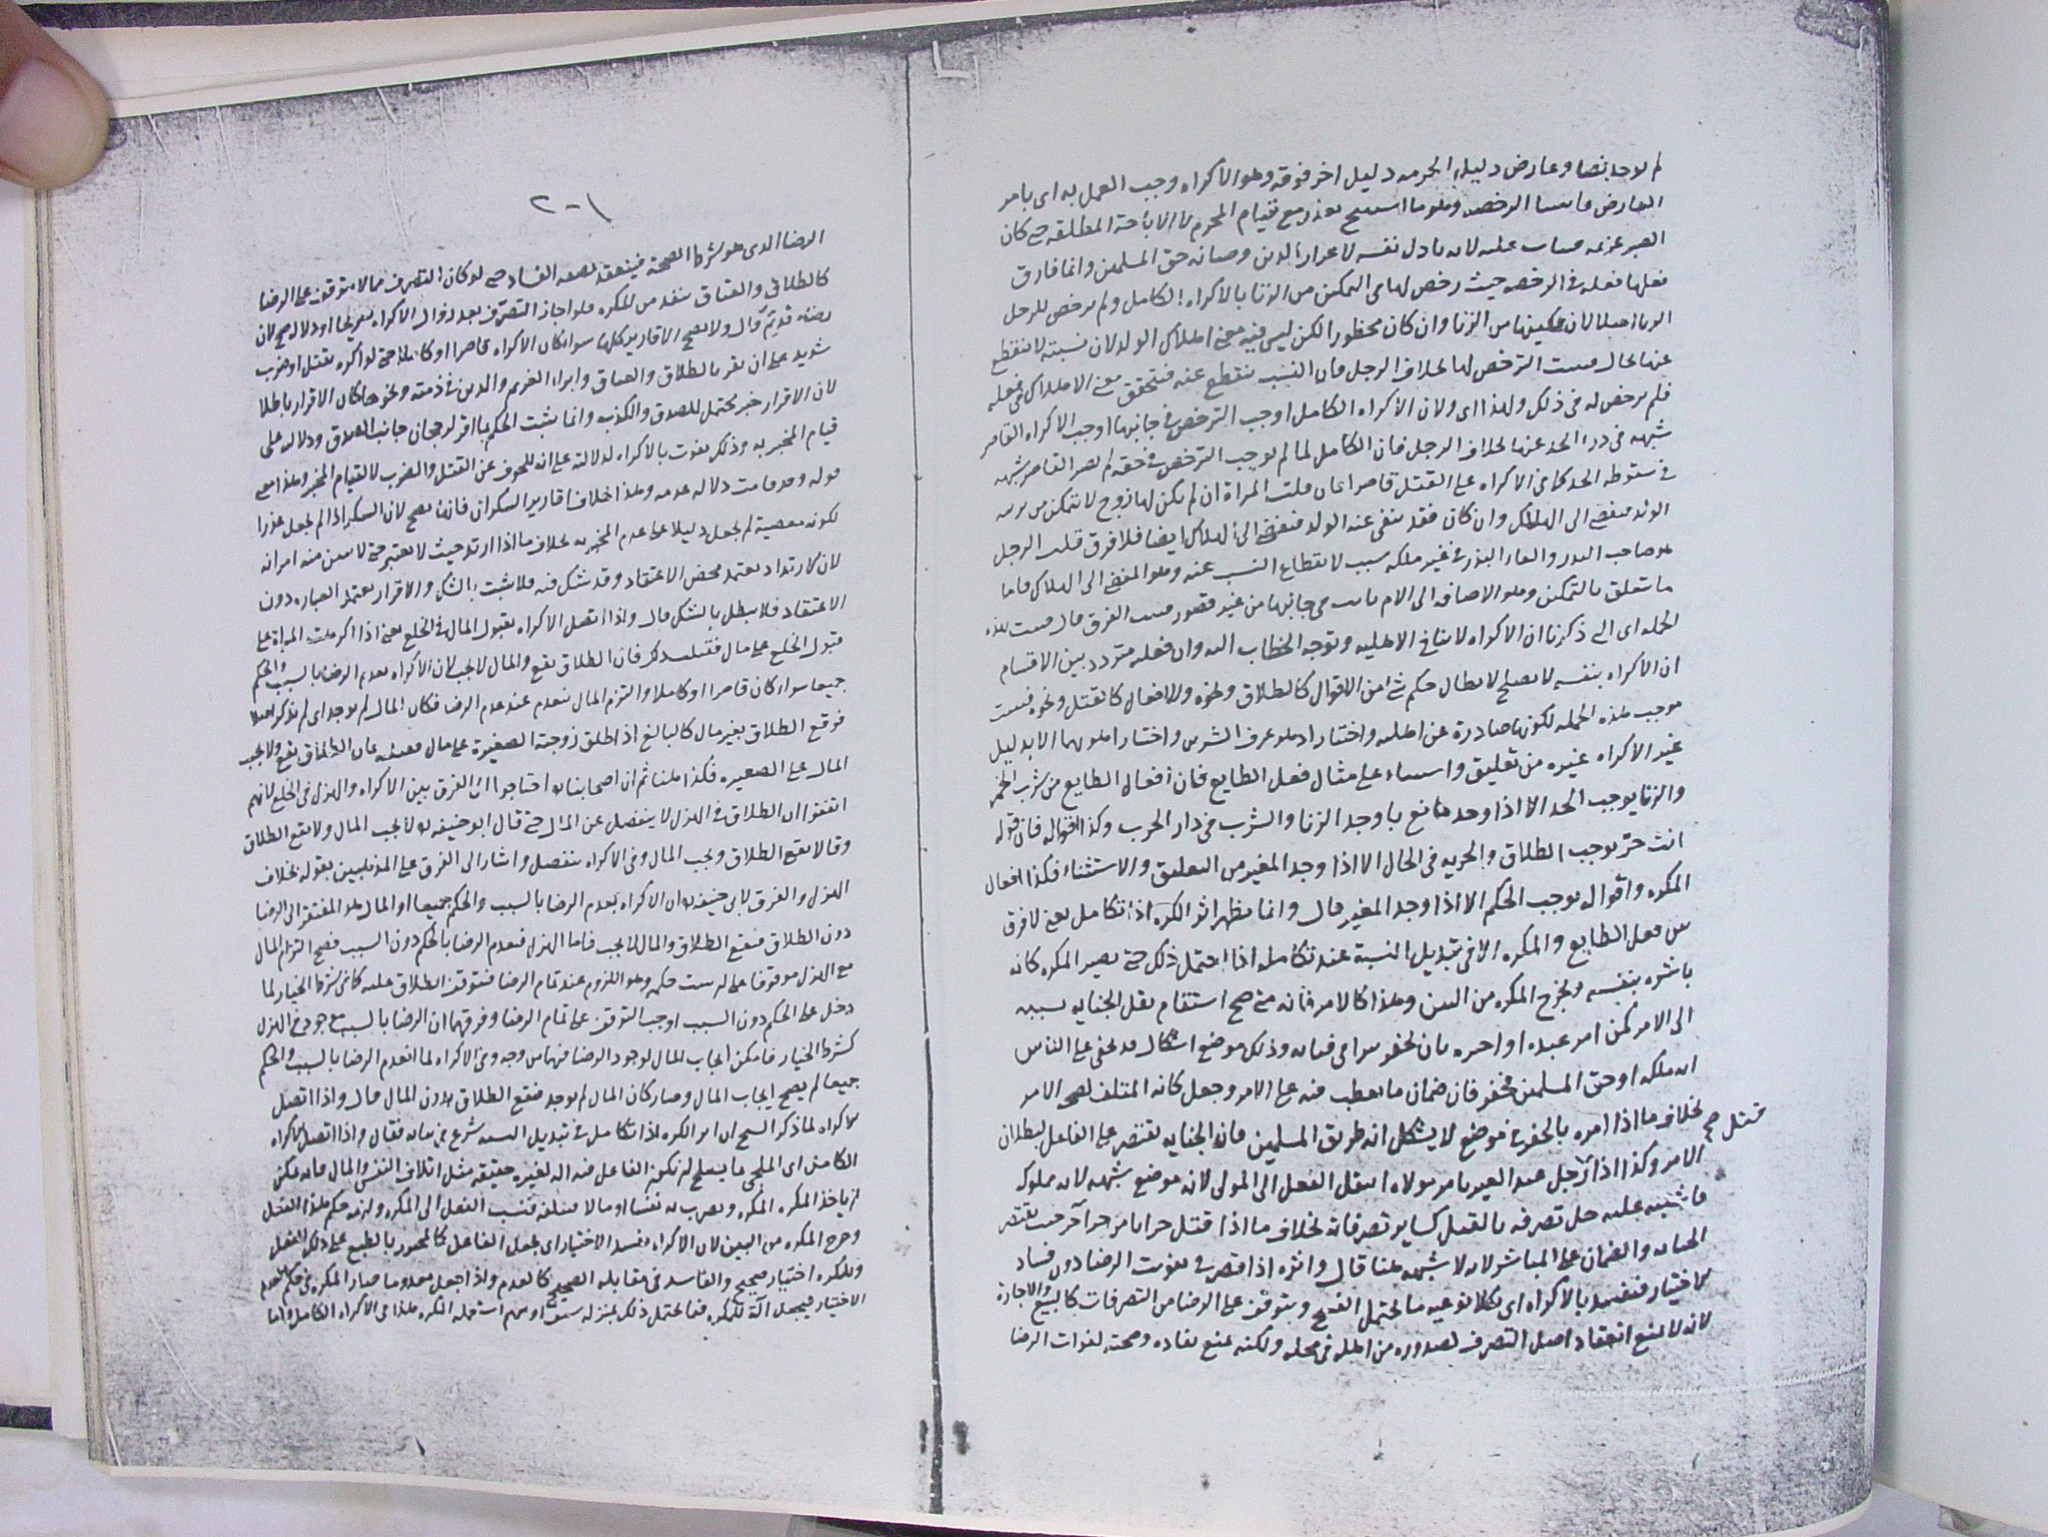 لم يوجد نصا وعارض دليل الحرمه دليل اخر فوقه وهو الاكراه وجب العمل به اى بامر
العارض الرخصه وهو ما استبيح بعذر مع قيام المحرم لا الاباحة المطلقه حتى كان
الصبر عزيمه لانه باذل نفسه لاعزاز الدين وصيانه حق المسلمين وانما فارق
فعلها فعله فى الرخصه حيث رخص لها فى التمكين من الزنا بالاكراه الكامل ولم يرخص للرجل
الزنا اصلا لان تمكينها من الزنا وان كان محظورا لكن ليس فيه معنى اهلاك الولد لان نسبته لا تنقطع
عنها بحال الترخص لها بخلاف الرجل فان النسب ينقطع عنه فتحقق معنى الاهلاك فى فعله
فلم يرخص له فى ذلك ولهذا اى ولان الاكراه الكامل اوجب الترخص فى جانبها اوجب الاكراه القاصر
شبهه فى درا الحد عنها بخلاف الرجل فان الكامل لما لم يوجب الترخص فى حقه لم يصر القاصر شبهه
فى سقوط الحد كما فى الاكراه على القتل قاصرا فان قلت المراة ان لم يكن لها زوج لا تتمكن من تربيه
الولد فيفضى الى الهلاك وان كان فقد ينفى عنه الولد فيفضى الى الهلاك ايضا فلا فرق قلت الرجل
هو صاحب البذر والقاء البذر فى غير ملكه سبب لانقطاع النسب عنه وهو المفضى الى الهلاك فاما
ما يتعلق بالتمكين وهو الاضافه الى الام من جانبها من غير قصور الفرق قال بهذه
الجمله اى التى ذكرنا ان الاكراه لا ينافى الاهليه وتوجه الخطاب اليه وان فعله متردد بين الاقسام
ان الاكراه بنفسه لا يصلح لابطال حكم شئ من الاقوال كالطلاق ونحوه والافعال كالقتل ونحوه فيثبت
موجب هذه الجمله لكونها صادرة عن اهليه واختيار اذ هو عرف الشرين واختار اهونهما الا بدليل
غير الاكراه غيره من تعليق واستثناء على مثال فعل الطايع فان افعال الطايع من شرب الخمر
والزنا يوجب الحد الا اذا وجد مانع بان وجد الزنا والشرب فى دار الحرب وكذا اقواله فان قوله
انت حر يوجب الطلاق والحريه فى الحال الا اذا وجد المغير من التعليق والاستثناء فكذا افعال
المكره واقواله يوجب الحكم الا اذا وجد المغير قال وانما يظهر اثر الكره اذا تكامل يعنى لا فرق
بين فعل الطايع والمكره الا فى تبديل النسبة عند تكامله اذا احتمل ذلك حتى يصير المكره كانه
باشره بنفسه ويخرج المكره من البين وهذا كالامر فانه متى صح استقام نقل الجنايه بسببه
الى الامر كمن امر عبده او احره بان يحفر بيرا فى فنائه وذلك موضع اشكال قد يخفى على الناس
انه ملكه او حق المسلمين فحفر فان ضمان ما يعطب فيه على الامر وجعل كانه المتلف لصحه الامر
بخلاف ما اذا امره بالحفر فى موضع لا يشكل انه طريق المسلمين فان الجنايه تقتصر على الفاعل لبطلان
الامر وكذا اذا قتل رجل عبد الغير بامر مولاه انتقل الفعل الى المولى لانه موضع شبهه لانه مملوكه
فاشتبه عليه حل تصرفه بالقتل كساير تصرفاته بخلاف ما اذا قتل حرا بامر حر آخر حيث تقتصر
الجنايه والضمان على المباشر لانه لا شبهه هنا قال واثره اذا قصر فى تفويت الرضا دون فساد
الاختيار فيفسد بالاكراه اى بكلا نوعيه ما يحتمل الفسخ ويتوقف على الرضا من التصرفات كالبيع والاجارة
لانه لا يمنع انعقاد اصل التصرف لصدوره من اهله فى محله ولكنه يمنع نفاده وصحته لفوات الرضا
٢٠١
الرضا الذى هو شرط الصحة فينعقد بصفه الفساد حتى لو كان التصرف مما لا يتوقف على الرضا
كالطلاق والعتاق ينفذ من المكره فلو اجاز التصرف بعد زوال الاكراه صريحا او دلاله صح لان
رضاه قد تم قال ولا يصح الاقارير كلها سواء كان الاكراه قاصرا او كاملا حتى لو اكره بقتل او ضرب
شديد على ان يقر بالطلاق والعتاق وابراء الغريم والدين فى ذمته ونحوها كان الاقرار باطلا
لان الاقرار خبر يحتمل للصدق والكذب وانما يثبت الحكم بما اقر لرجحان جانب الصدق ودلاله على
قيام المخبر به وذلك يفوت بالاكراه لدلالته على انه للخوف عن القتل والضرب لا لقيام المخبر وهذا معنى
قوله وقد قامت دلاله عدمه وهذا بخلاف اقارير السكران فانها تصح لان السكر اذا لم يجعل عذرا
لكونه معصية لم يجعل دليلا على عدم المخبر به بخلاف ما اذا ارتد حيث لا يعتبر حتى لا تبين منه امراته
لان الارتداد يعتمد محض الاعتقاد وقد شك فيه فلا يثبت بالشك والاقرار يعتمد العباره دون
الاعتقاد فلا يبطل بالشك قال واذا اتصل الاكراه بقبول المال فى الخلع يعنى اذا اكرهت المراة على
قبول الخلع على مال فقبلت ذلك فان الطلاق يقع والمال لا يجب لان الاكراه يعدم الرضا بالسبب والحكم
جميعا سواء كان قاصرا او كاملا والتزام المال ينعدم عند عدم الرضا فكان المال لم يوجد اى لم يذكر اصلا
فوقع الطلاق بغير مال كالبالغ اذا طلق زوجته الصغيرة على مال فقبلته فان الطلاق يقع ولا يجب
المال على الصغيره فكذا هنا ثم ان اصحابنا احتاجوا الى الفرق بين الاكراه والهزل فى الخلع لانهم
اتفقوا ان الطلاق فى الهزل لا ينفصل عن المال حتى قال ابو حنيفه لا يجب المال ولا يقع الطلاق
وقالا يقع الطلاق ويجب المال وفى الاكراه ينفصل واشار الى الفرق على المذهبين بقوله بخلاف
الهزل والفرق لابى حنيفه ان الاكراه يعدم الرضا بالسبب والحكم جميعا والمال هو المفتقر الى الرضا
دون الطلاق فيقع الطلاق والمال لا يجب فاما الهزل فيعدم الرضا بالحكم دون السبب فصح التزام المال
مع الهزل موقوفا على ان يثبت حكمه وهو اللزوم عند تمام الرضا فتوقف الطلاق عليه كما فى شرط الخيار لما
دخل على الحكم دون السبب اوجب التوقف على تمام الرضا وفرقهما ان الرضا بالسبب موجود فى الهزل
كشرط الخيار فامكن ايجاب المال لوجود الرضا فيها من وجه وفى الاكراه لما انعدم الرضا بالسبب والحكم
جميعا لم يصح ايجاب المال وصار كان المال لم يوجد فيقع الطلاق بدون المال قال واذا اتصل
الاكراه لما ذكر الشيخ ان اثر الكره اذا تكامل فى تبديل النسبه شرع فى بيانه فقال واذا اتصل الاكراه
الكامل اى الملجى بما يصلح ان يكون الفاعل فيه اله لغيره حقيقة مثل اتلاف النفس والمال فانه يمكن
ان ياخذ المكره المكره ويضرب به نفسا او مالا فيتلفه فينسب الفعل الى المكره ولزمه حكم هذا الفعل
وخرج المكره من البين لان الاكراه يفسد الاختيار اى يجعل الفاعل كالمجبور بالطبع على ذلك الفعل
وللمكره اختيار صحيح والفاسد فى مقابله الصحيح كالعدم واذا جعل معدوما صار المكره فى حكم عديم
الاختيار فيجعل آلة للمكره فيما يحتمل ذلك بمنزله سيف او سهم استعمله المكره هذا فى الاكراه الكامل واما